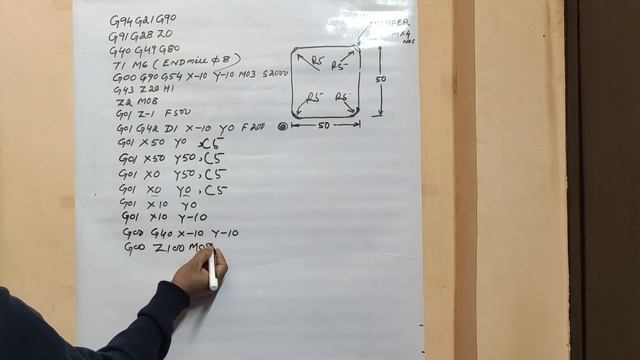 G94 G21 G90
G91 G28 Z0
G40 G49 G80
T1 M6 (ENDmill Φ8)
G00 G90 G54 X-10 Y-10 M03 S2000
G43 Z20 H1
Z2 M08
G01 Z-1 F500
G01 G42 D1 X-10 Y0 F200
G01 X50 Y0 ,C5
G01 X50 Y50 ,C5
G01 X0 Y50 ,C5
G01 X0 Y0 ,C5
G01 X10 Y0
G01 X10 Y-10
G00 G40 X-10 Y-10
G00 Z100 M09
R5 R5
50
R5 R5
50